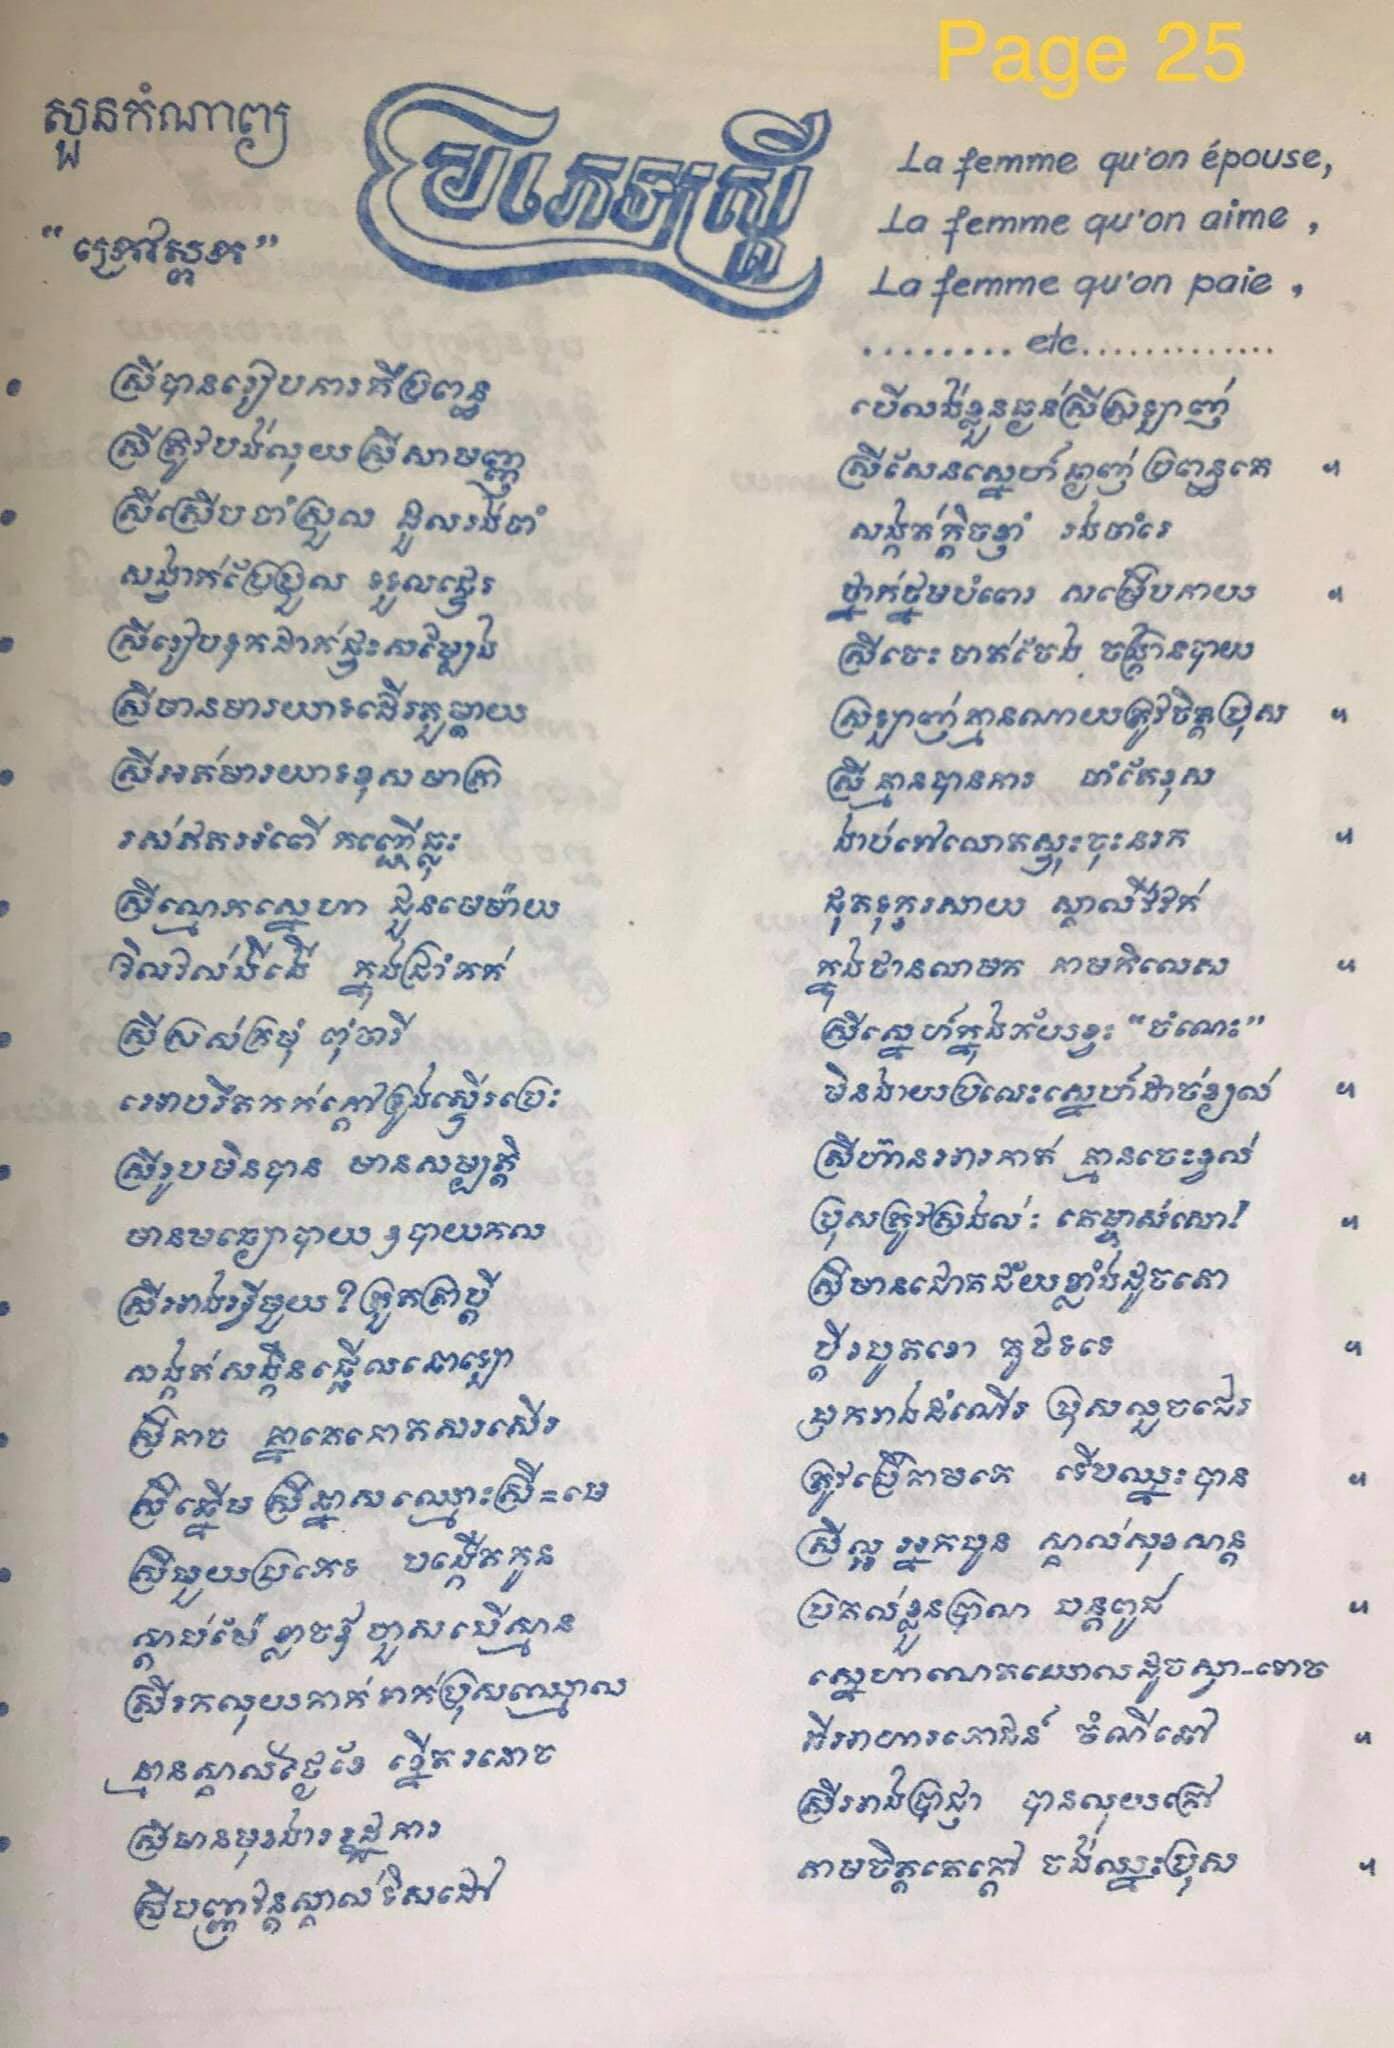 Page 25
សួនកំណាព្យ
"ក្រៅស្តុក"
ប្រភេទស្ត្រី
La femme qu'on épouse,
La femme qu'on aime,
La femme qu'on paie,
........ etc.............
ស្រីបានរៀបការគឺប្រពន្ធ បើលង់ខ្លួនធ្ងន់ស្រីស្រឡាញ់
ស្រីត្រូវបង់លុយស្រីសាមញ្ញ ស្រីសែនស្នេហ៍ធ្ងាញ់ប្រពន្ធគេ ៕
ស្រីស្រើបចាំស្រួល ដួលរង់ចាំ សង្កត់ក្តិចខ្ទាំ រង់ចាំរេ
សង្វាក់ប្រែប្រួល ទទួលផ្ទេរ ថ្នាក់ថ្នមបំពេរ សម្រើបកាយ ៕
ស្រីរៀបទុកដាក់ផ្ទះសម្បែង ស្រីចេះចាត់ចែង ចង្ក្រានបាយ
ស្រីមានមារយាទដើរតួម្តាយ ស្រឡាញ់គ្មានណាយត្រូវចិត្តប្រុស ៕
ស្រីអត់មារយាទខុសមាត្រា ស្រីគ្មានបានការ ចាំតែខុស
រស់ឥតអំពើ កញ្ឆើធ្លុះ ងាប់ទៅលោតស្ទុះចុះនរក ៕
ស្រីល្មោភស្នេហា ជួនមេម៉ាយ ដុតទុក្ខរសាយ ស្គាល់វីវក់
វិលវល់ងងើ ក្នុងជ្រាំភក់ ក្នុងឋានលាមក កាមកិលេស ៕
ស្រីស្រស់ក្រមុំ ពុំចារី ស្រីស្នេហ៍ក្នុងភ័យខ្វះ "ចំណេះ"
អោបរឹតកក់ក្តៅទ្រូងស្ទើរប្រេះ មិនងាយប្រលេះស្នេហ៍ដាច់ខ្យល់ ៕
ស្រីរូបមិនបាន មានសម្បត្តិ ស្រីហ៊ានអារកាត់ គ្មានចេះខ្វល់
មានមធ្យោបាយ ឧបាយកល ប្រុសត្រូវស្រងល់: គេម្ចាស់លោ!
ស្រីអាងអ្វីមួយ? ត្រួតត្រាប្តី ស្រីមានជោគជ័យខ្លាំងដូចតោ
សង្កត់សង្កិនធ្វើលដោឡា ប្តីរបូតខោ គូថទទេ ៕
ស្រីកាច គ្នាគេកោតសរសើរ ដុករាងដំណើរ ប្រុសលួចជេរ
ស្រីឆ្នើម ស្រីឆ្នាស ឈ្មោះស្រី=មេ ត្រូវធ្វើតាមគេ ទើបឈ្នះបាន ៕
ស្រីមួយប្រភេទ បង្កើតកូន ស្រីល្អអ្នកមូន ស្គាល់សុខសាន្ត
ស្តាប់ម៉ែខ្លាចឪហួសបើស្មាន ប្រគល់ខ្លួនប្រាណ បន្តពូជ ៕
ស្រីរកលុយកាក់ រាក់ប្រុសឈ្មោល ស្នេហាណតឃោលដូចស្វា-ទោច
គ្មានស្គាល់ថ្ងៃខែ ខ្នើតរនោច ពីរអាហារភោជន៍ ចំណីឆៅ ៕
ស្រីមានមុខងាររដ្ឋការ ស្រីអាងប្រាជ្ញា បានលុយក្រៅ
ស្រីបញ្ញាវ័ន្តស្គាល់ទិសដៅ តាមចិត្តគេក្តៅ ចង់ឈ្នះប្រុស ៕